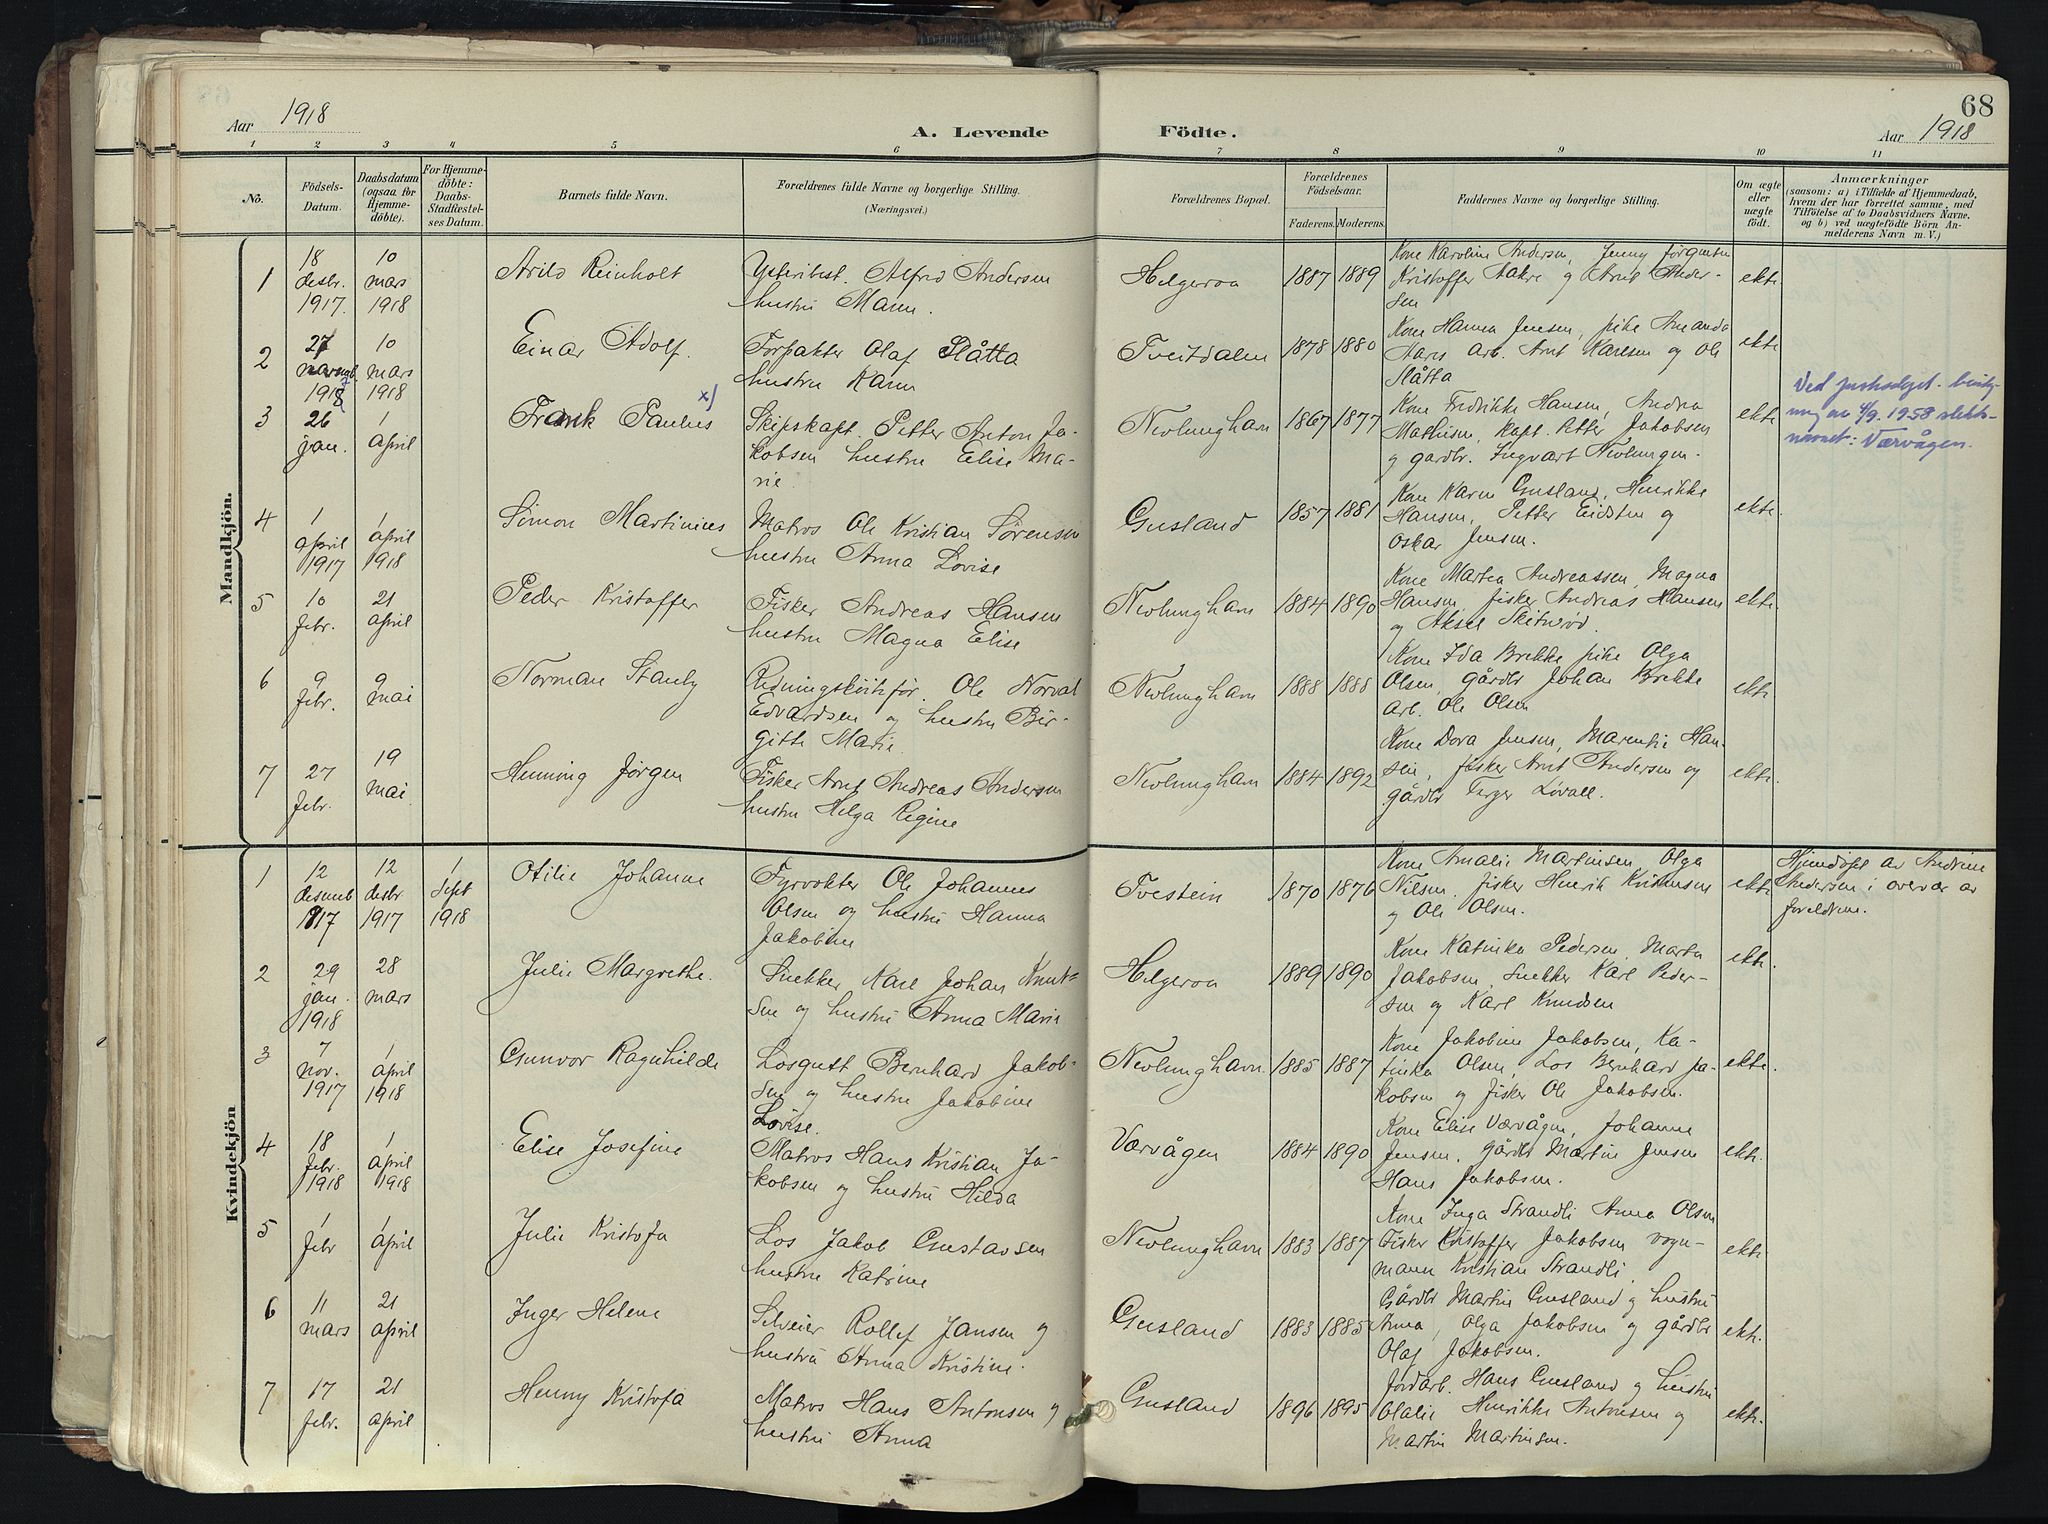 68
Aar 1918
A. Levende Födte.
Aar 1918
1 2 3 4 5 6 7 8 9 10 11
No.
Födsels-
Datum.
Daabsdatum
(ogsaa for
Hjemme-
döbte).
For Hjemme-
döbte:
Daabs-
Stadfæstel-
ses Datum.
Barnets fulde Navn.
Forældrenes fulde Navne og borgerlige Stilling.
(Næringsvei.)
Forældrenes Bopæl.
Forældrenes
Födselsaar.
Faderens. Moderens.
Faddernes Navne og borgerlige Stilling.
Om ægte
eller
uægte
födt.
Anmærkninger
(saasom: a) i Tilfælde af Hjemmedaab,
hvem der har forrettet samme, med
Tilföielse af to Daabsvidners Navne,
og b) ved uægtefödte Börn An-
melderens Navn m. V.)
Mandkjön.
1
18
desbr.
1917.
10
mars
1918
Arild Reinholt
Alfred Andersen
hustru Maren.
Helgeroa
1887 1889
Kone Karoline Andersen, Jenny Jörgensen
Kristoffer Aakre og Arnt Ander-
sen
ekte
2
27
1917
10
mars
1918
Einar Adolf.
Forpakter Olaf Slåtta
hustru Karen
Tveitdalen
1878 1880
Kone Hanna Jensen, pike Amanda
Hans arb. Arnt Karlsen og Ole
Slåtta
ekte
3
26
jan.
1
april
Frank Paulus x)
Skipskapt. Petter Anton Ja-
kobsen hustru Elise Ma-
rie.
Nevlunghavn
1867 1877
Kone Fredrikke Hansen, Andrea
Mathisen, kapt. Petter Jakobsen
og gardbr. Ingvart Nevlungen.
ekte
Ved
1958 slekts-
navnet: Værvågen.
4
1
april
1917
1
april
1918
Simon Martinius
Matros Ole Kristian Sørensen
hustru Anna Lovise
Gusland
1857 1881
Kone Karen Gusland, Henrikke
Hansen, Petter Eidsten og
Oskar Jensen.
ekte
5
10
febr.
21
april
Peder Kristoffer
Fisker Andreas Hansen
hustru Magna Elise
Nevlunghavn
1884 1890
Kone Martea Andreassen, Magna
Hansen, fisker Andreas Hansen
og Aksel
ekte
6
9
febr.
9
mai
Norman Stanly
Redningsköitefør. Ole Norval
Edvardsen og hustru Bir-
gitte Marie.
Nevlunghavn
1888 1888
Kone Ida Brekke pike Olga
Olsen, gårdbr Johan Brekke
arb. Ole Olsen
ekte
7
27
febr.
19
mai
Henning Jørgen
Fisker Arnt Andreas Andersen
hustru Helga Regine
Nevlunghavn
1884 1892
Kone Dora Jensen, Marentie Han-
sen, fisker Arnt Andersen og
gårdbr Løvall.
ekte.
Kvindekjön
1
12
desemb
1917
12
desbr
1917
1
sept
1918
Otilie Johanne
Fyrvokter Ole Johannes
Olsen og hustru Hanna
Jakobine
Tvestein
1870 1876
Kone Amalie Martinsen, Olga
Nilsen, fisker Henrik Kristensen
og Ole Olsen.
ekte
Hjemdöpt av Andrine
Andersen i overvær av
foreldrene.
2
29
jan.
1918
28
mars
Julie Margrethe.
Snekker Karl Johan Knut-
sen og hustru Anna Marie
Helgeroa
1889 1890
Kone Katinka Pedersen, Marta
Jakobsen, snekker Karl Peder-
sen og Karl Knudsen
ekte.
3
7
nov.
1917
1
april
1918
Gunvor Ragnhilde
Losgutt Bernhard Jakob-
sen og hustru Jakobine
Lovise.
Nevlunghavn.
1885 1887
Kone Jakobine Jakobsen, Ka-
tinka Olsen, Los Bernhard Ja-
kobsen og fisker Ole Jakobsen.
ekte.
4
18
febr.
1918
1
april
1918
Elise Josefine
Matros Hans Kristian Ja-
kobsen og hustru Hilda
Værvågen
1884 1890
Kone Elise Værvågen, Johanne
Jensen, gårdbr Martin Jensen
Hans Jakobsen.
ekte.
5
1
febr
1
april
Julie Kristofa
Los Jakob Gustavsen
hustru Katrine
Nevlunghavn
1883 1887
Kone Inga Strandli Anna Olsen
Fisker Kristoffer Jakobsen vogn-
mann Kristian Strandli
ekte
6
11
mars
21
april
Inger Helene
Rollef Jansen og
hustru Anna Kristine.
Gusland
1883 1885
Gårdbr Martin Gusland og hustru
Anna, Olga Jakobsen og gårdbr
Olaf Jakobsen.
ekte.
7
17
febr.
21
april
Henny Kristofa
Matros Hans Antonsen og
hustru Anna
Gusland
1896 1895
Jordarb. Hans Gusland og hustru
Olalie Henrikke Antonsen og
Martin Martinsen.
ekte.